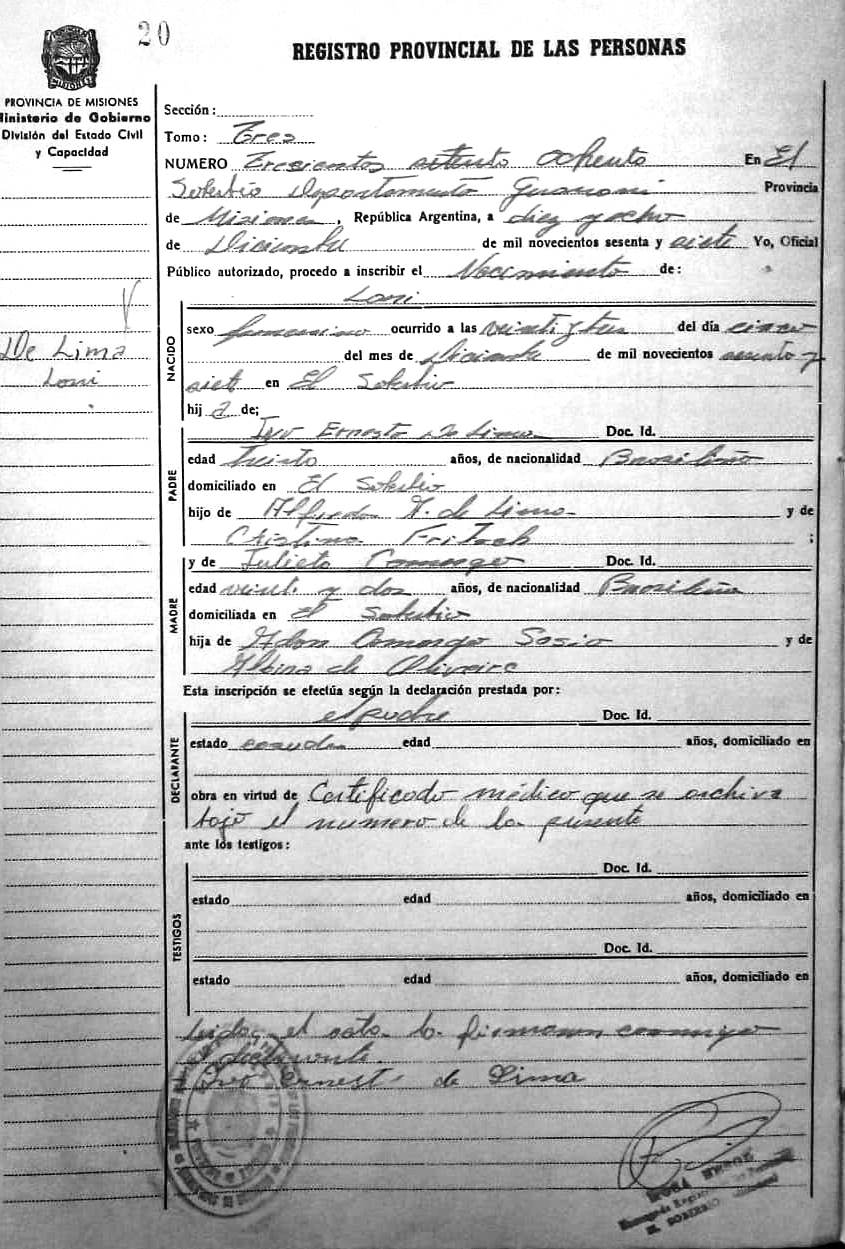 20
REGISTRO PROVINCIAL DE LAS PERSONAS
PROVINCIA DE MISIONES
Ministerio de Gobierno
División del Estado Civil
y Capacidad
Sección:
Tomo: Tres
NUMERO Trescientos setenta ochenta En El
Soberbio Departamento Guarani Provincia
de Misiones, República Argentina, a diez y ocho
de Diciembre de mil novecientos sesenta y siete Yo, Oficial
Público autorizado, procedo a inscribir el Nacimiento de:
Loni
De Lima
Loni
NACIDO
sexo femenino ocurrido a las veinti y tres del día cinco
del mes de Diciembre de mil novecientos sesenta y
siete en El Soberbio
hija de;
PADRE
Ivo Ernesto de Lima Doc. Id.
edad treinta años, de nacionalidad Brasileña
domiciliado en El Soberbio
hijo de Alfredo de Lima y de
Cristina ;
MADRE
y de Julieta Camargo Doc. Id.
edad veinti y dos años, de nacionalidad Brasileña
domiciliada en El Soberbio
hija de Adon Camargo y de
Albina de Oliveira
Esta inscripción se efectúa según la declaración prestada por:
DECLARANTE
el padre Doc. Id.
estado edad años, domiciliado en
obra en virtud de Certificado médico que se archiva
bajo el numero de la presente
ante los testigos:
TESTIGOS
Doc. Id.
estado edad años, domiciliado en
Doc. Id.
estado edad años, domiciliado en
Leida el acta la firmaron conmigo
el declarante.
Ivo Ernesto de Lima